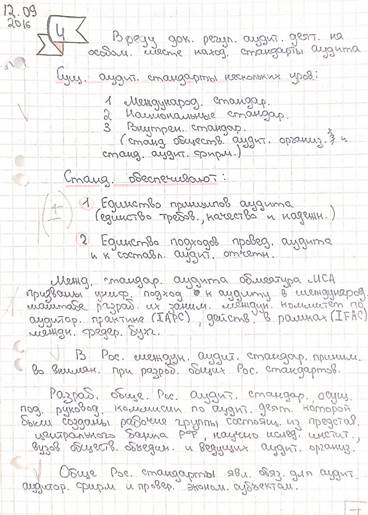 12.09
2016
4
В реду док. регул. аудит. деят. на
особом. месте наход. стандарты аудита
Сущ. аудит. стандарты нескольких уров:
1 Международ. стандар.
2 Национальные стандар.
3 Внутрен. стандар.
(станд обществ. аудит. организ. и
станд. аудит. фирм.)
Станд. обеспечивают:
1 Единство принципов аудита
(единство требов., качество и надежн.)
2 Единство подходов провед. аудита
и к составл. аудит. отчетн.
Межд. стандар. аудита МСА
призваны униф. подход к аудиту в международ.
масштабе разраб. их заним. междун. комитет по
аудитор. практике (IAPC), действ. в рамках (IFAC)
межд. федер. бухг.
В Рос. междун. аудит. стандар. приним.
во вниман. при разраб. общих Рос. стандартов.
Разраб. обще. Рос. аудит. стандар. осущ.
под. руковод. комиссии по аудит. деят. которой
были созданы рабочие группы состоящ. из представ.
центрального банка РФ, научно исслед. инстит.,
вузов обществ. объедин. и ведущих аудит. организ.
Обще Рос. стандарты явл. обяз. для аудит.
аудитор. фирм и провер. эконом. субъектам.